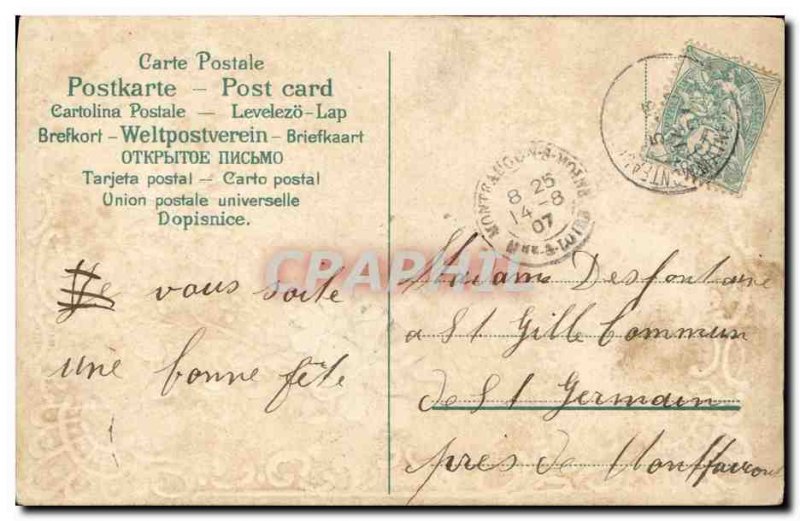 Carte Postale
Postkarte – Post card
Cartolina Postale – Levelezö-Lap
Brefkort – Weltpostverein – Briefkaart
ОТКРЫТОЕ ПИСЬМО
Tarjeta postal – Carto postal
Union postale universelle
Dopisnice.
8 25
14 - 8
07
CPAPHIL
Je vous soite
une bonne fête
Madame Desfontaine
a St Gille Commun
de St Germain
près de